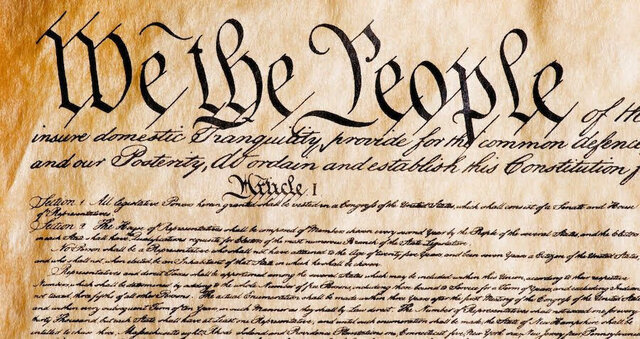 We the People of the
insure domestic Tranquility, provide for the common defence
and our Posterity, do ordain and establish this Constitution f
Article I
Section 1. All legislative Powers herein granted shall be vested in a Congress of the United States, which shall consist of a Senate and House
of Representatives.
Section 2. The House of Representatives shall be composed of Members chosen every second Year by the People of the several States, and the Electors
in each State shall have the Qualifications requisite for Electors of the most numerous Branch of the State Legislature.
No Person shall be a Representative who shall not have attained to the Age of twenty five Years, and been seven Years a Citizen of the United States,
and who shall not, when elected, be an Inhabitant of that State in which he shall be chosen.
Representatives and direct Taxes shall be apportioned among the several States which may be included within this Union, according to their respective
Numbers, which shall be determined by adding to the whole Number of free Persons, including those bound to Service for a Term of Years, and excluding Indians
not taxed, three fifths of all other Persons. The actual Enumeration shall be made within three Years after the first Meeting of the Congress of the United States
and within every subsequent Term of ten Years, in such Manner as they shall by Law direct. The Number of Representatives shall not exceed one for every
thirty Thousand, but each State shall have at Least one Representative; and until such enumeration shall be made, the State of New Hampshire shall be
entitled to chuse three, Massachusetts eight, Rhode Island and Providence Plantations one, Connecticut five, New York six, New Jersey four, Pennsylvania